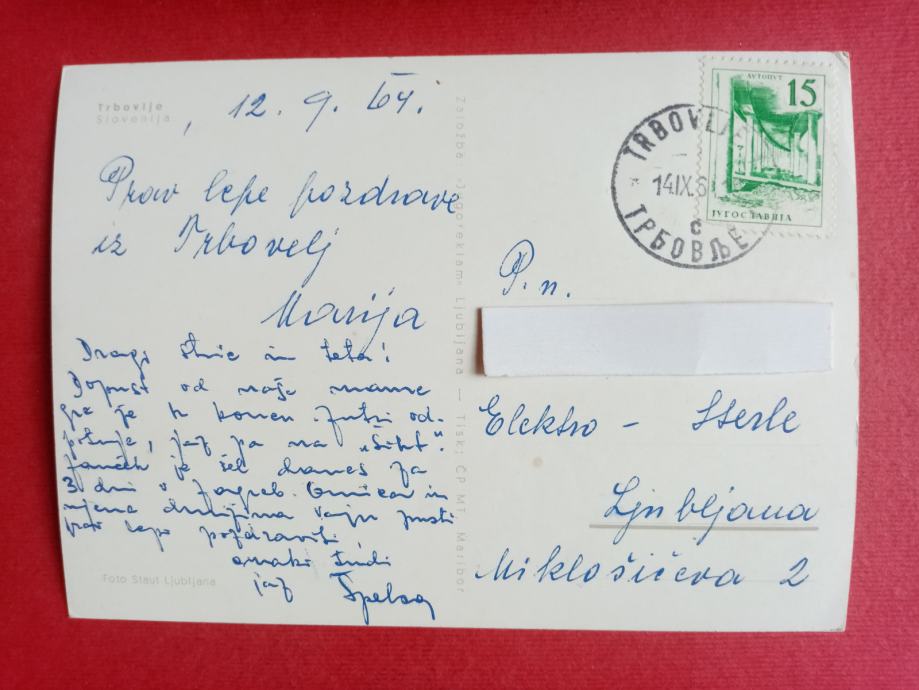 Trbovlje
Slovenija
, 12. 9. 64.
Prav lepe pozdrave
iz Trbovelj
Marija
Dragi stric in teta!
Dopust od naše mame
gre že h koncu. Jutri od-
potuje, jaz pa na "šiht".
Janček je šel danes za
3 dni v Zagreb. in
njena družina vaju pusti
prav lepo pozdraviti,
enako tudi
jaz Špelca
Foto Staut Ljubljana
Založba »Jugoreklam« Ljubljana — Tisk: ČP MT, Maribor
АУТОПУТ
15
ЈУГОСЛАВИЈА
TRBOVLJE
14.IX.6
c
ТРБОВЉЕ
P.n.
Elektro - Sterle
Ljubljana
Miklošičeva 2